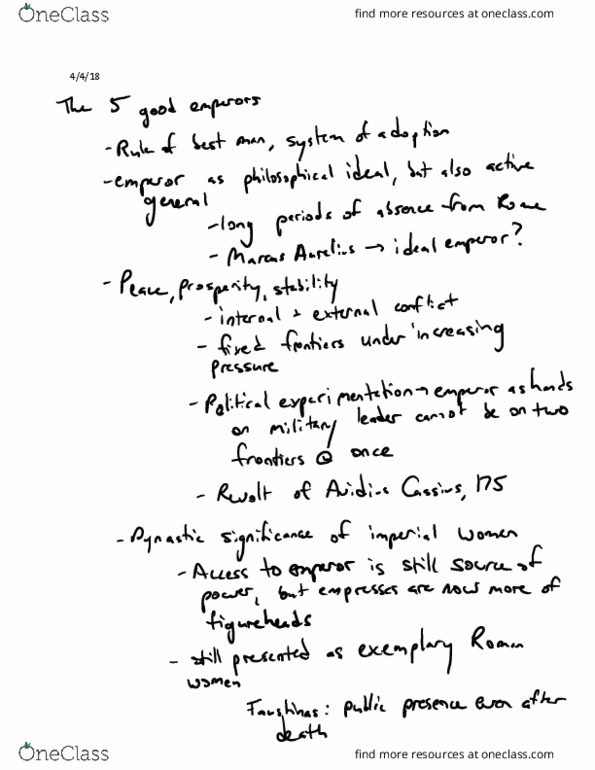 OneClass find more resources at oneclass.com
4/4/18
The 5 good emperors
- Rule of best man, system of adoption
- emperor as philosophical ideal, but also active
general
- long periods of absence from Rome
- Marcus Aurelius → ideal emperor?
- Peace, prosperity, stability
- internal + external conflict
- fixed frontiers under increasing
pressure
- Political experimentation → emperor as hands
on military leader cannot be on two
frontiers @ once
- Revolt of Avidius Cassius, 175
- Dynastic significance of imperial women
- Access to emperor is still source of
power, but empresses are now more of
figureheads
- still presented as exemplary Roman
women
Faustinas: public presence even after
death
OneClass find more resources at oneclass.com